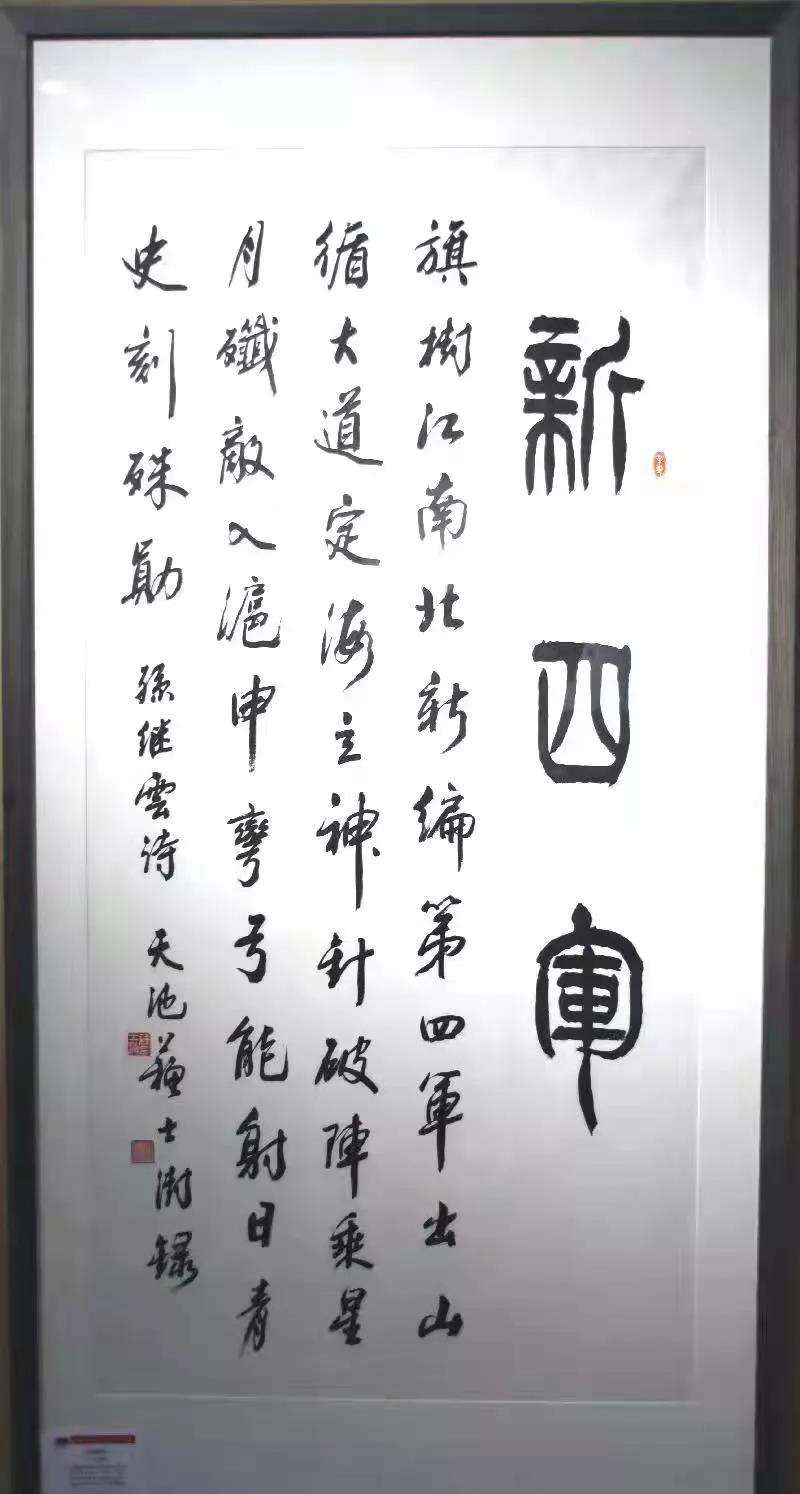 新四軍
旗樹江南北新编第四軍出山
循大道定海立神針破陣乘星
月殲敵入滬申彎弓能射日青
史刻殊勛
孫继雲诗 天池蘇士澍録